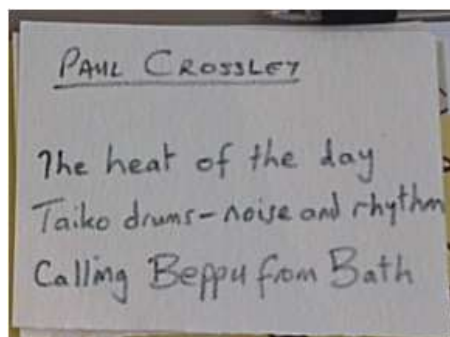 PAUL CROSSLEY
The heat of the day
Taiko drums - noise and rhythm
Calling Beppu from Bath